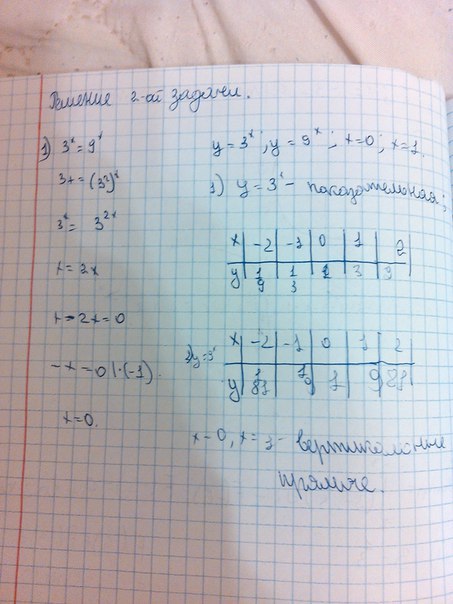 Решение 2-ой задачи.
1) 3^x = 9^x
3x = (3²)^x
3^x = 3^{2x}
x = 2x
x - 2x = 0
-x = 0 | ·(-1)
x = 0.
y = 3^x; y = 9^x; x = 0; x = 1.
1) y = 3^x - показательная;
x | -2 | -1 | 0 | 1 | 2
y | 1/9 | 1/3 | 1 | 3 | 9
2) y = 9^x
x | -2 | -1 | 0 | 1 | 2
y | 1/81 | 1/9 | 1 | 9 | 81
x = 0, x = 1 - вертикальные
прямые.